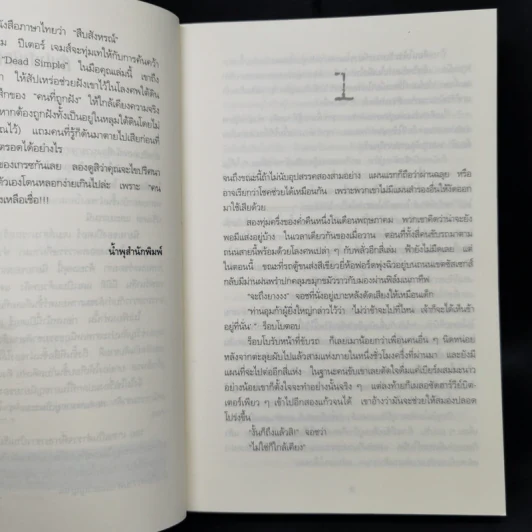 นังสือภาษาไทยว่า "สืบสังหรณ์"
ม ปีเตอร์ เจมส์จะทุ่มเทให้กับการค้นคว้า
"Dead Simple" ในมือคุณเล่มนี้ เขาถึง
า ให้สัปเหร่อช่วยฝังเขาไว้ในโลงศพใต้ดิน
สึกของ "คนที่ถูกฝัง" ให้ใกล้เคียงความจริง
หากต้องถูกฝังทั้งเป็นอยู่ในหลุมใต้ดินโดยไม่
ณไว้) แถมคนที่รู้ก็ดันมาตายไปเสียก่อนที่
รอดได้อย่างไร
ของเกรซกันเลย ลองดูสิว่าคุณจะไขปริศนา
ตัวเองโดนหลอกง่ายเกินไปล่ะ เพราะ "คน
เหลือเชื่อ!!!
น้ำพุสำนักพิมพ์
1
จนถึงขณะนี้ถ้าไม่นับอุปสรรคสองสามอย่าง แผนแรกก็ถือว่าผ่านฉลุย หรือ
อาจเรียกว่าโชคช่วยได้เหมือนกัน เพราะพวกเขาไม่มีแผนสำรองอื่นให้งัดออก
มาใช้เสียด้วย
สองทุ่มครึ่งของค่ำคืนหนึ่งในเดือนพฤษภาคม พวกเขาคิดว่าน่าจะยัง
พอมีแสงอยู่บ้าง ในเวลาเดียวกันของเมื่อวาน ตอนที่ทั้งสี่คนขับรถมาตาม
ถนนสายนี้พร้อมด้วยโลงศพเปล่า ๆ กับพลั่วอีกสี่เล่ม ฟ้ายังไม่มืดเลย แต่
ในตอนนี้ ขณะที่รถตู้ขนส่งสีเขียวยี่ห้อฟอร์ดพุ่งฉิวอยู่บนถนนเขตซัสเซกส์
กลับมีม่านฝนพรำปกคลุมขมุกขมัวราวกับมองผ่านฟิล์มเนกาทีฟ
"จะถึงยางงง" จอชที่นั่งอยู่เบาะหลังดัดเสียงให้เหมือนเด็ก
"ท่านอุมก้าผู้ยิ่งใหญ่กล่าวไว้ว่า 'ไม่ว่าข้าจะไปที่ไหน เจ้าก็จะได้เห็นข้า
อยู่ที่นั่น'" ร็อบโบตอบ
ร็อบโบรับหน้าที่ขับรถ ก็เลยเมาน้อยกว่าเพื่อนคนอื่น ๆ นิดหน่อย
หลังจากตะลุยผับไปแล้วสามแห่งภายในหนึ่งชั่วโมงครึ่งที่ผ่านมา และยังมี
แผนที่จะไปต่ออีกสี่แห่ง ในฐานะคนขับเขาเลยตัดใจดื่มแค่เบียร์ผสมมะนาว
อย่างน้อยเขาก็ตั้งใจจะทำอย่างนั้นจริง ๆ แต่ลงท้ายก็เผลอซัดฮาร์วีย์บิต-
เตอร์เพียว ๆ เข้าไปอีกสองแก้วจนได้ เขาอ้างว่ามันจะช่วยให้สมองปลอด
โปร่งขึ้น
"งั้นก็ถึงแล้วสิ!" จอชว่า
"ไม่ใช่ก็ใกล้เคียง"